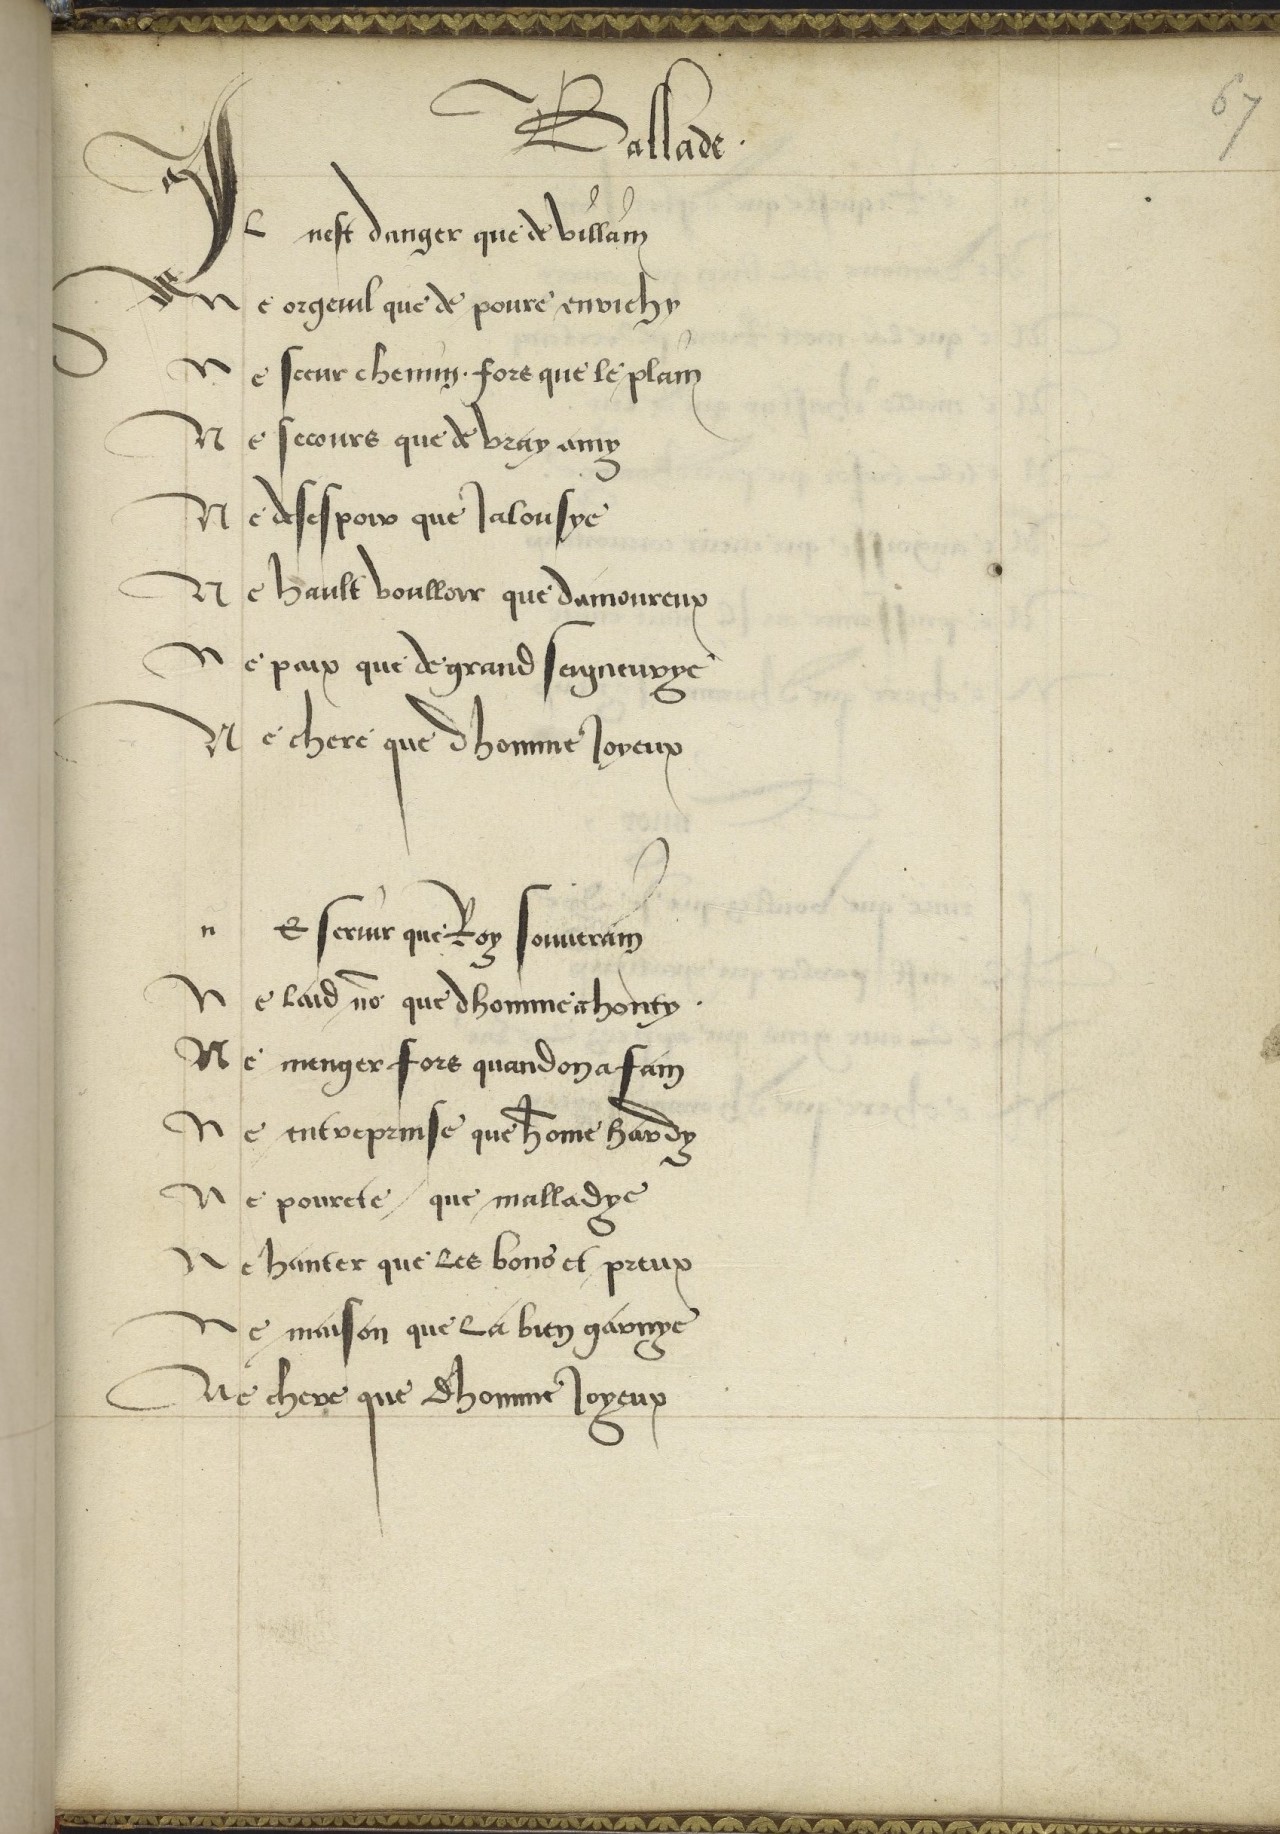 67
Ballade.
Il nest danger que de villain
Ne orgeuil que de poure enrichy
Ne seeur chemin. fors que le plain
Ne secours que de vray amy
Ne desespoir que Jalousye
Ne hault voulloir que damoureux
Ne paix que de grand seigneurye
Ne chere que dhomme Joyeux
Ne seruir que Roy souuerain
Ne laid nõ que dhomme ahonty.
Ne menger fors quand on a fain
Ne entreprinse que hõme hardy
Ne pourete / que malladye
Ne hanter que les bons et preux
Ne maison que la bien garnye
Ne chere que dhomme Joyeux